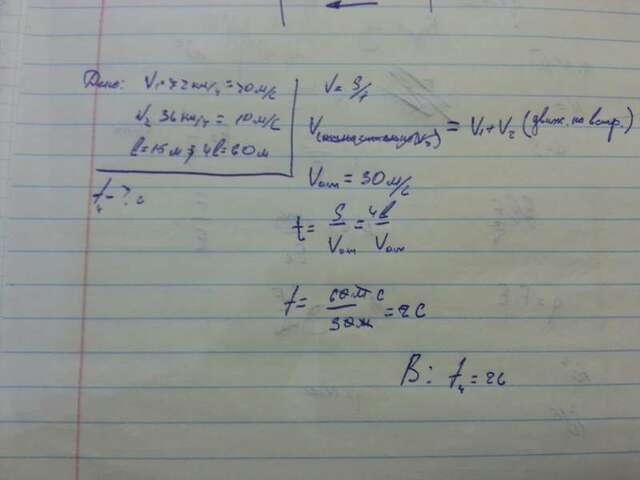 Дано: V₁ 72 км/ч = 20 м/с
V₂ 36 км/ч = 10 м/с
l = 15 м; 4l = 60 м
t₄ - ? с
V = S/t
V = V₁ + V₂ (движ. на встр.)
Vотн = 30 м/с
t = S/Vотн = 4l/Vотн
t = 60м с/30м = 2с
В: t₄ = 2с